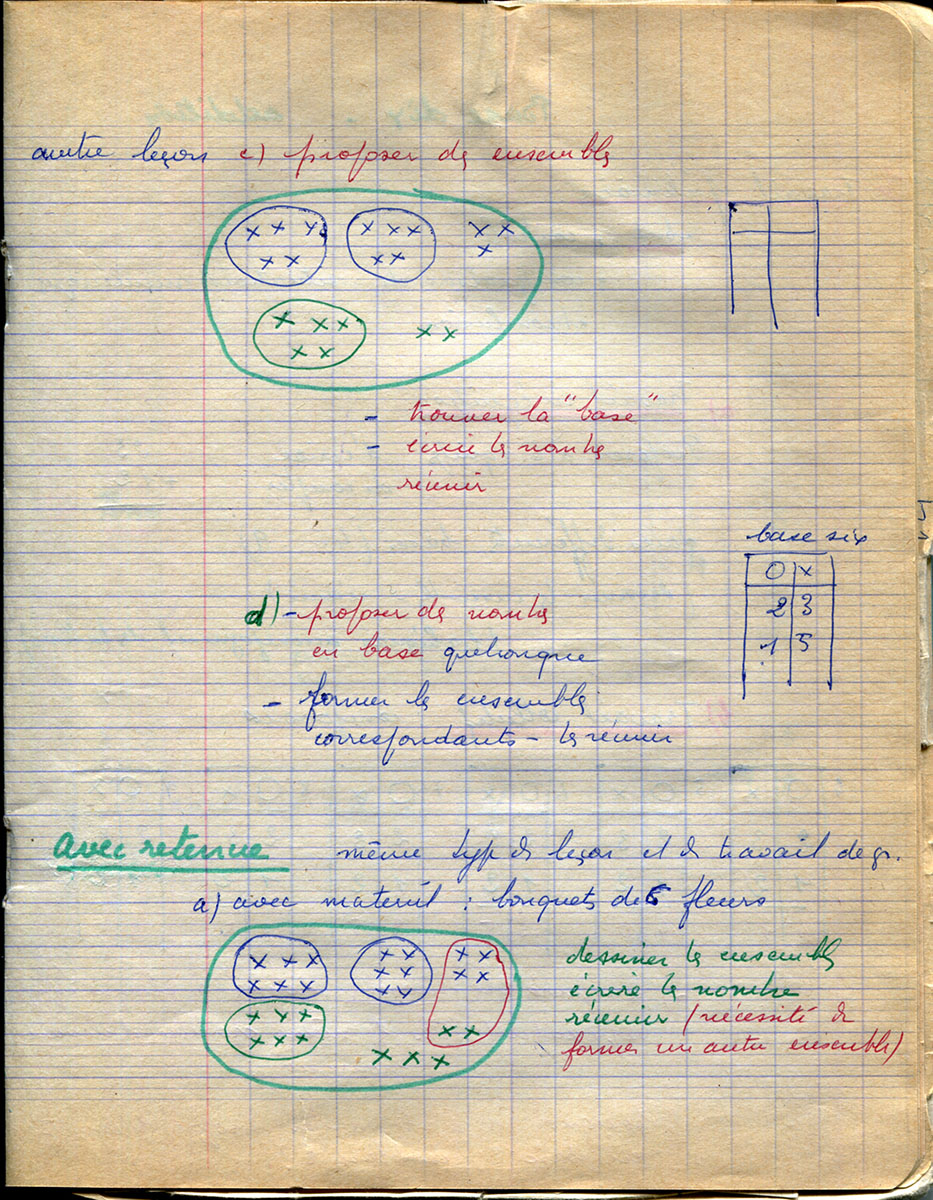 autre leçons c) proposer des ensembles
- trouver la "base"
- écrire les nombres
réunir
base six
0 x
2 3
1 5
d) - proposer des nombres
en base quelconque
- former les ensembles
correspondants - les réunir
Avec retenue même type de leçon et de travail de gr.
a) avec matériel : bouquets de 6 fleurs
dessiner les ensembles
écrire les nombres
réunir (nécessité de
former un autre ensemble)